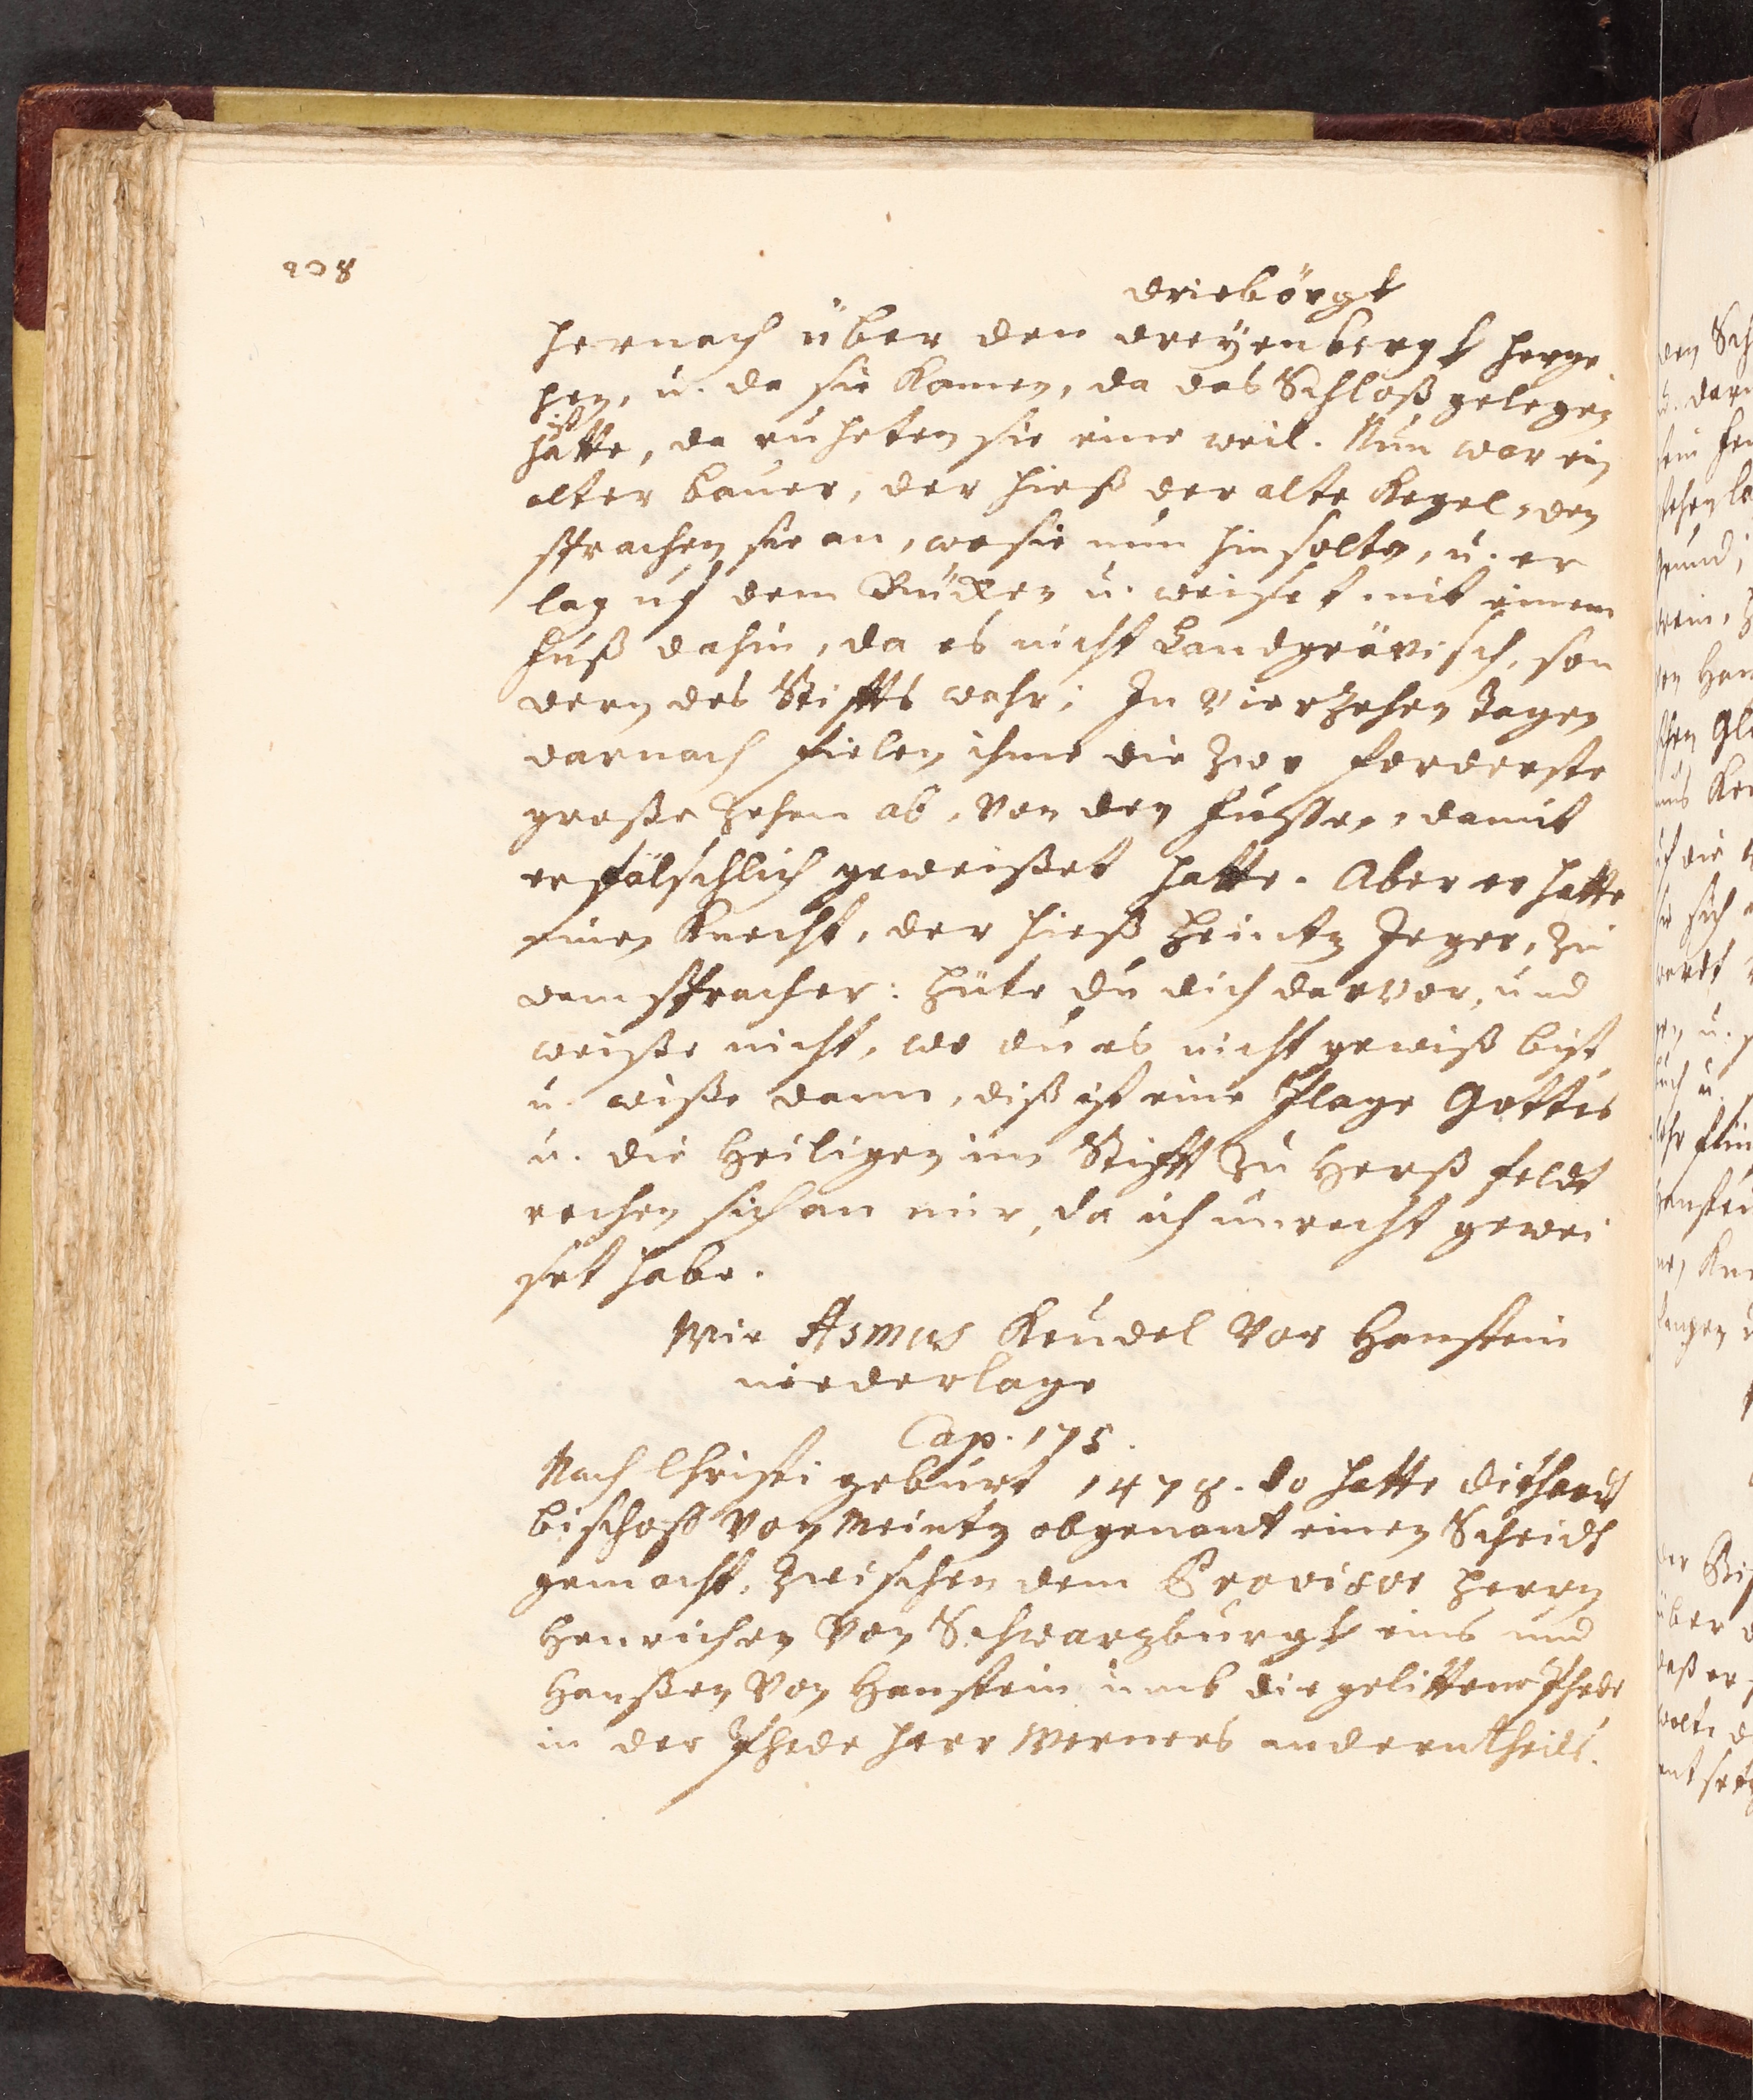 208
driebörgk
hernach über den dreyenbergk herge
hen, u. da sie kamen, da das Schloß gelegen
ist
hatte, da ruheten sie eine weil. Nun war ein
alter bauer, der hieß der alte Kegel, den
sprachen sie an, wo sie nun hin solte, u. er
lag uf dem Rücken u. weiset mit einem
fuß dahin, da es nicht Landgrävisch, son
dern des Stiffts wahr; In vierzehen Tagen
darnach fielen ihme die zwo forderste
große zehen ab, von den fussen, damit
er fälschlich geweißet hatte. Aber er hatte
einen Knecht, der hieß Heintz Jeger, zu
dem sprach er: hüte du dich darvor, und
weiße nicht, wo du es nicht gewiß bist
u. wiße dann, diß ist eine plage Gottes
u. die Heiligen im Stifft zu Herßfeldt
rechen sich an mir, da ich unrecht gewei
set habe.
Wie Asmus Keudel vor Hanstein
niederlage
Cap. 175.
Nach Christi geburt 1478. do hatte
bischoff von Meintz obgenant einen Scheidt
gemacht, zwischen dem Provisor Herrn
Henrichen von Schwarzburgk eins und
Hanßen von Hanstein umb die gelittene Phede
in der Phede Herr Werners anderntheils.
den Sch